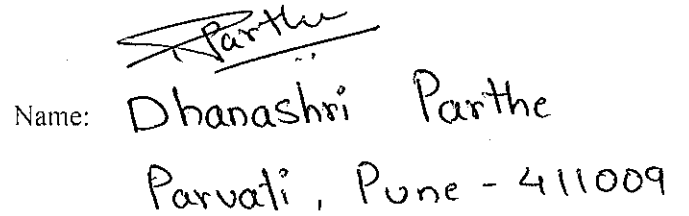 Parthe
Name: Dhanashri Parthe
Parvati, Pune - 411009